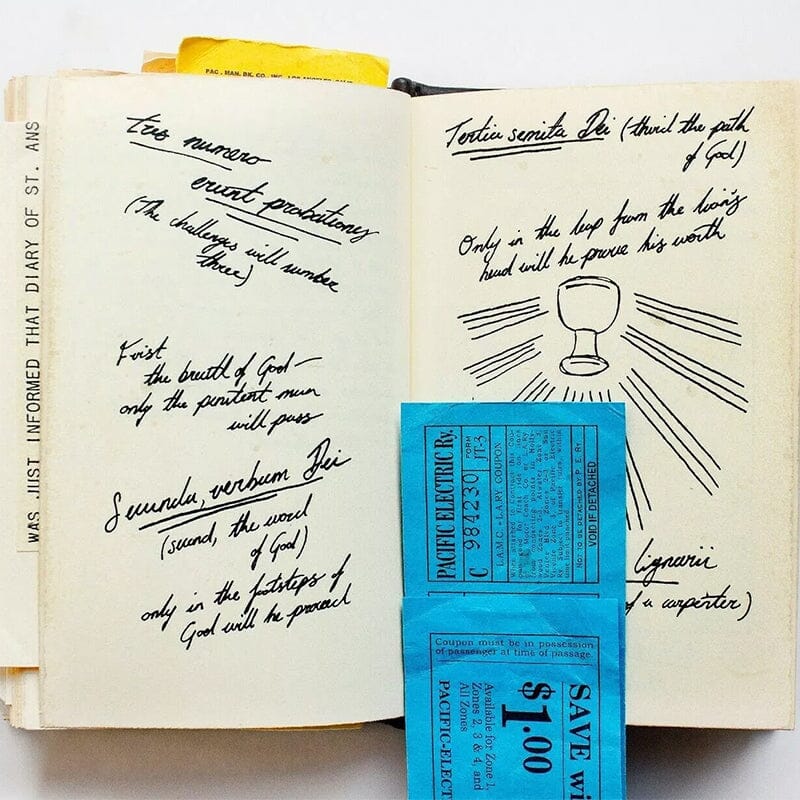 PAC. MAN. BK. CO., INC. LOS ANGELES, CALIF.
WAS JUST INFORMED THAT DIARY OF ST. ANS
tres numero
erunt probationes
(The challenges will number
three)
First
the breath of God—
only the penitent man
will pass
Secunda, verbum Dei
(second, the word
of God)
only in the footsteps of
God will he proceed
Tertia semita Dei (third the path
of God)
Only in the leap from the lion's
head will he prove his worth
lignarii
of a carpenter)
PACIFIC ELECTRIC Ry.
FORM
JT-3
C 984230
L.A.M.C. - L.A.RY. COUPON
NOT TO BE DETACHED BY P. E. RY
VOID IF DETACHED
Coupon must be in possession
of passenger at time of passage.
SAVE wi
$1.00
Available for Zone 1,
Zones 2, 3 & 4, and
All Zones
PACIFIC-ELECT